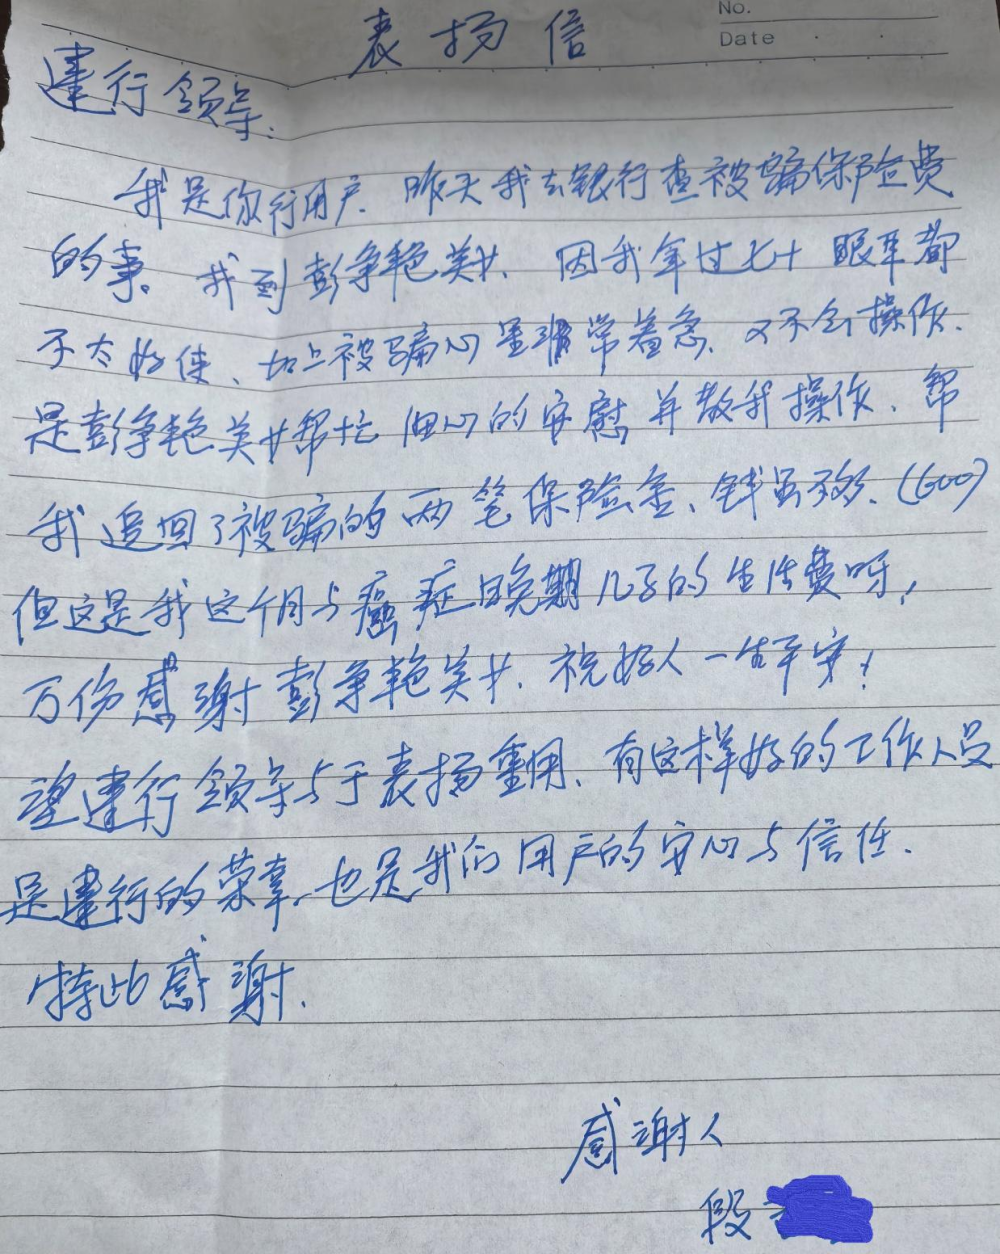 No.
Date
表扬信
建行领导:
我是你行用户.昨天我去银行查被骗保险费
的事。我到彭争艳美女、因我年过七十眼耳都
不太好使、加上被骗心里非常着急、又不会操作.
是彭争艳美女帮忙细心的安慰并教我操作、帮
我追回了被骗的两笔保险金、钱虽不多、(600)
但这是我这个月与癌症晚期儿子的生活费呀!
万份感谢彭争艳美女、祝好人一生平安!
望建行领导与于表扬重用、有这样好的工作人员
是建行的荣幸、也是我们用户的安心与信任.
特此感谢.
感谢人
段